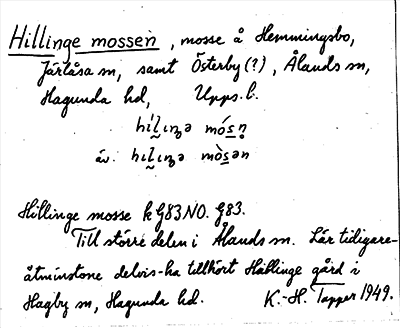 Hillinge mossen, mosse å Hemmingsbo,
Järlåsa sn, samt Österby (?), Ålands sn,
Hagunda hd, Upps. l.
híl̬ıŋə mós̲n̥
äv. hıl̬ıŋə mòs̲ən
Hillinge mosse k G83NO. G83.
Till större delen i Ålands sn. Lär tidigare-
åtminstone delvis-ha tillhört Hällinge gård i
Hagby sn, Hagunda hd. K.-H. Tapper 1949.